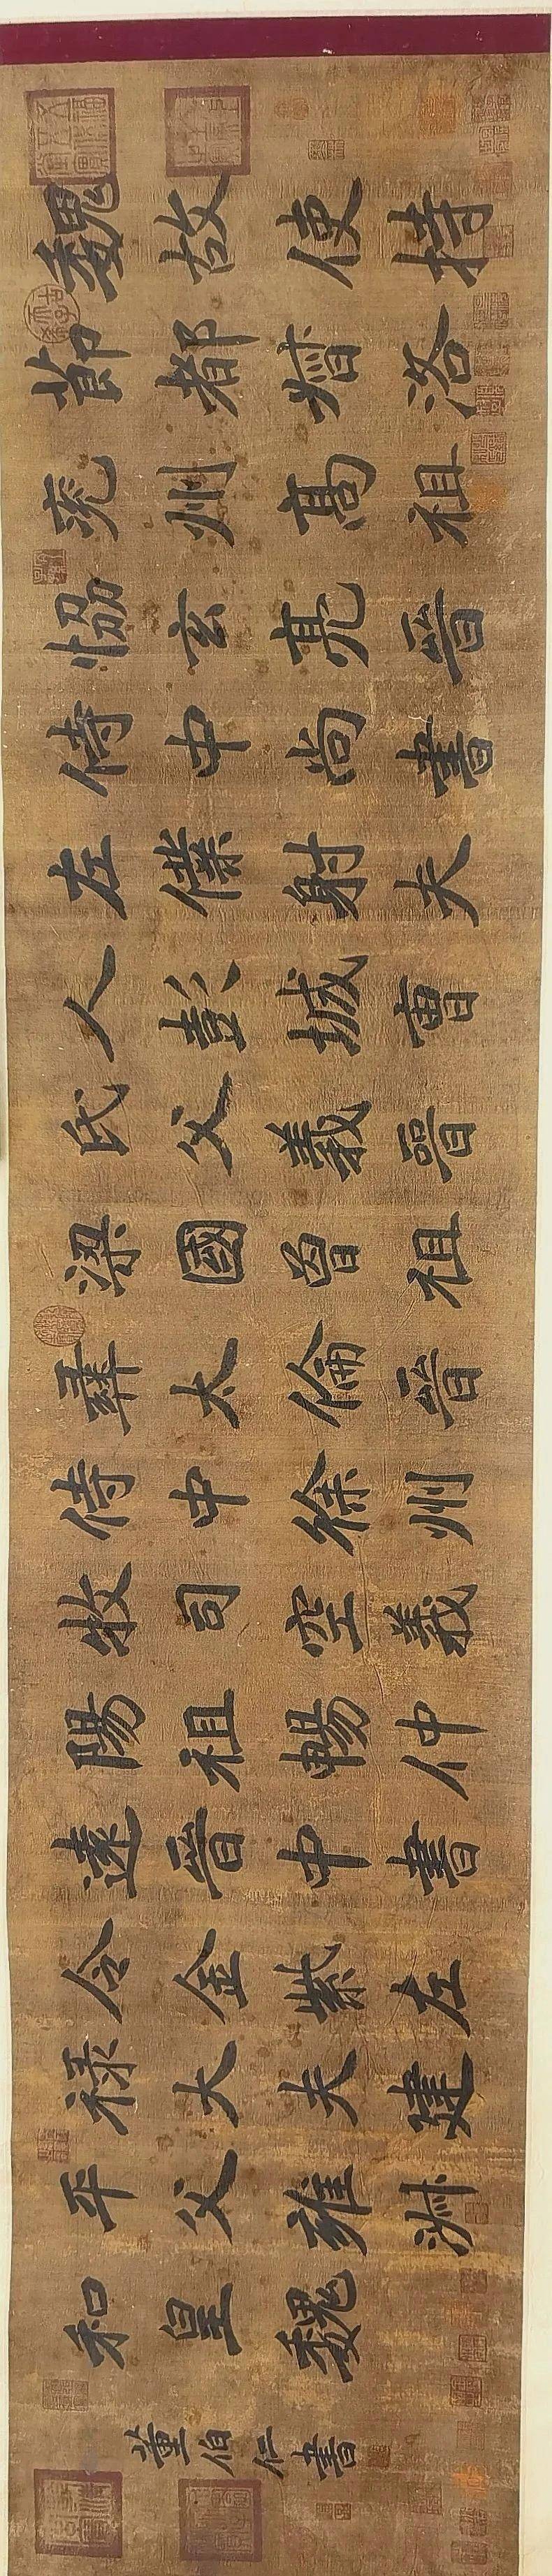 魏故使持
節都督洛
兗州高祖
協玄亮晉
侍中尚書
左僕射夫
人彭城曹
氏父義晉
梁國曾祖
彝太倫晉
侍中徐州
牧司空義
陽祖暢仲
遠晉中書
令金紫左
祿大夫建
平父雍淑
和皇魏
董伯仁書